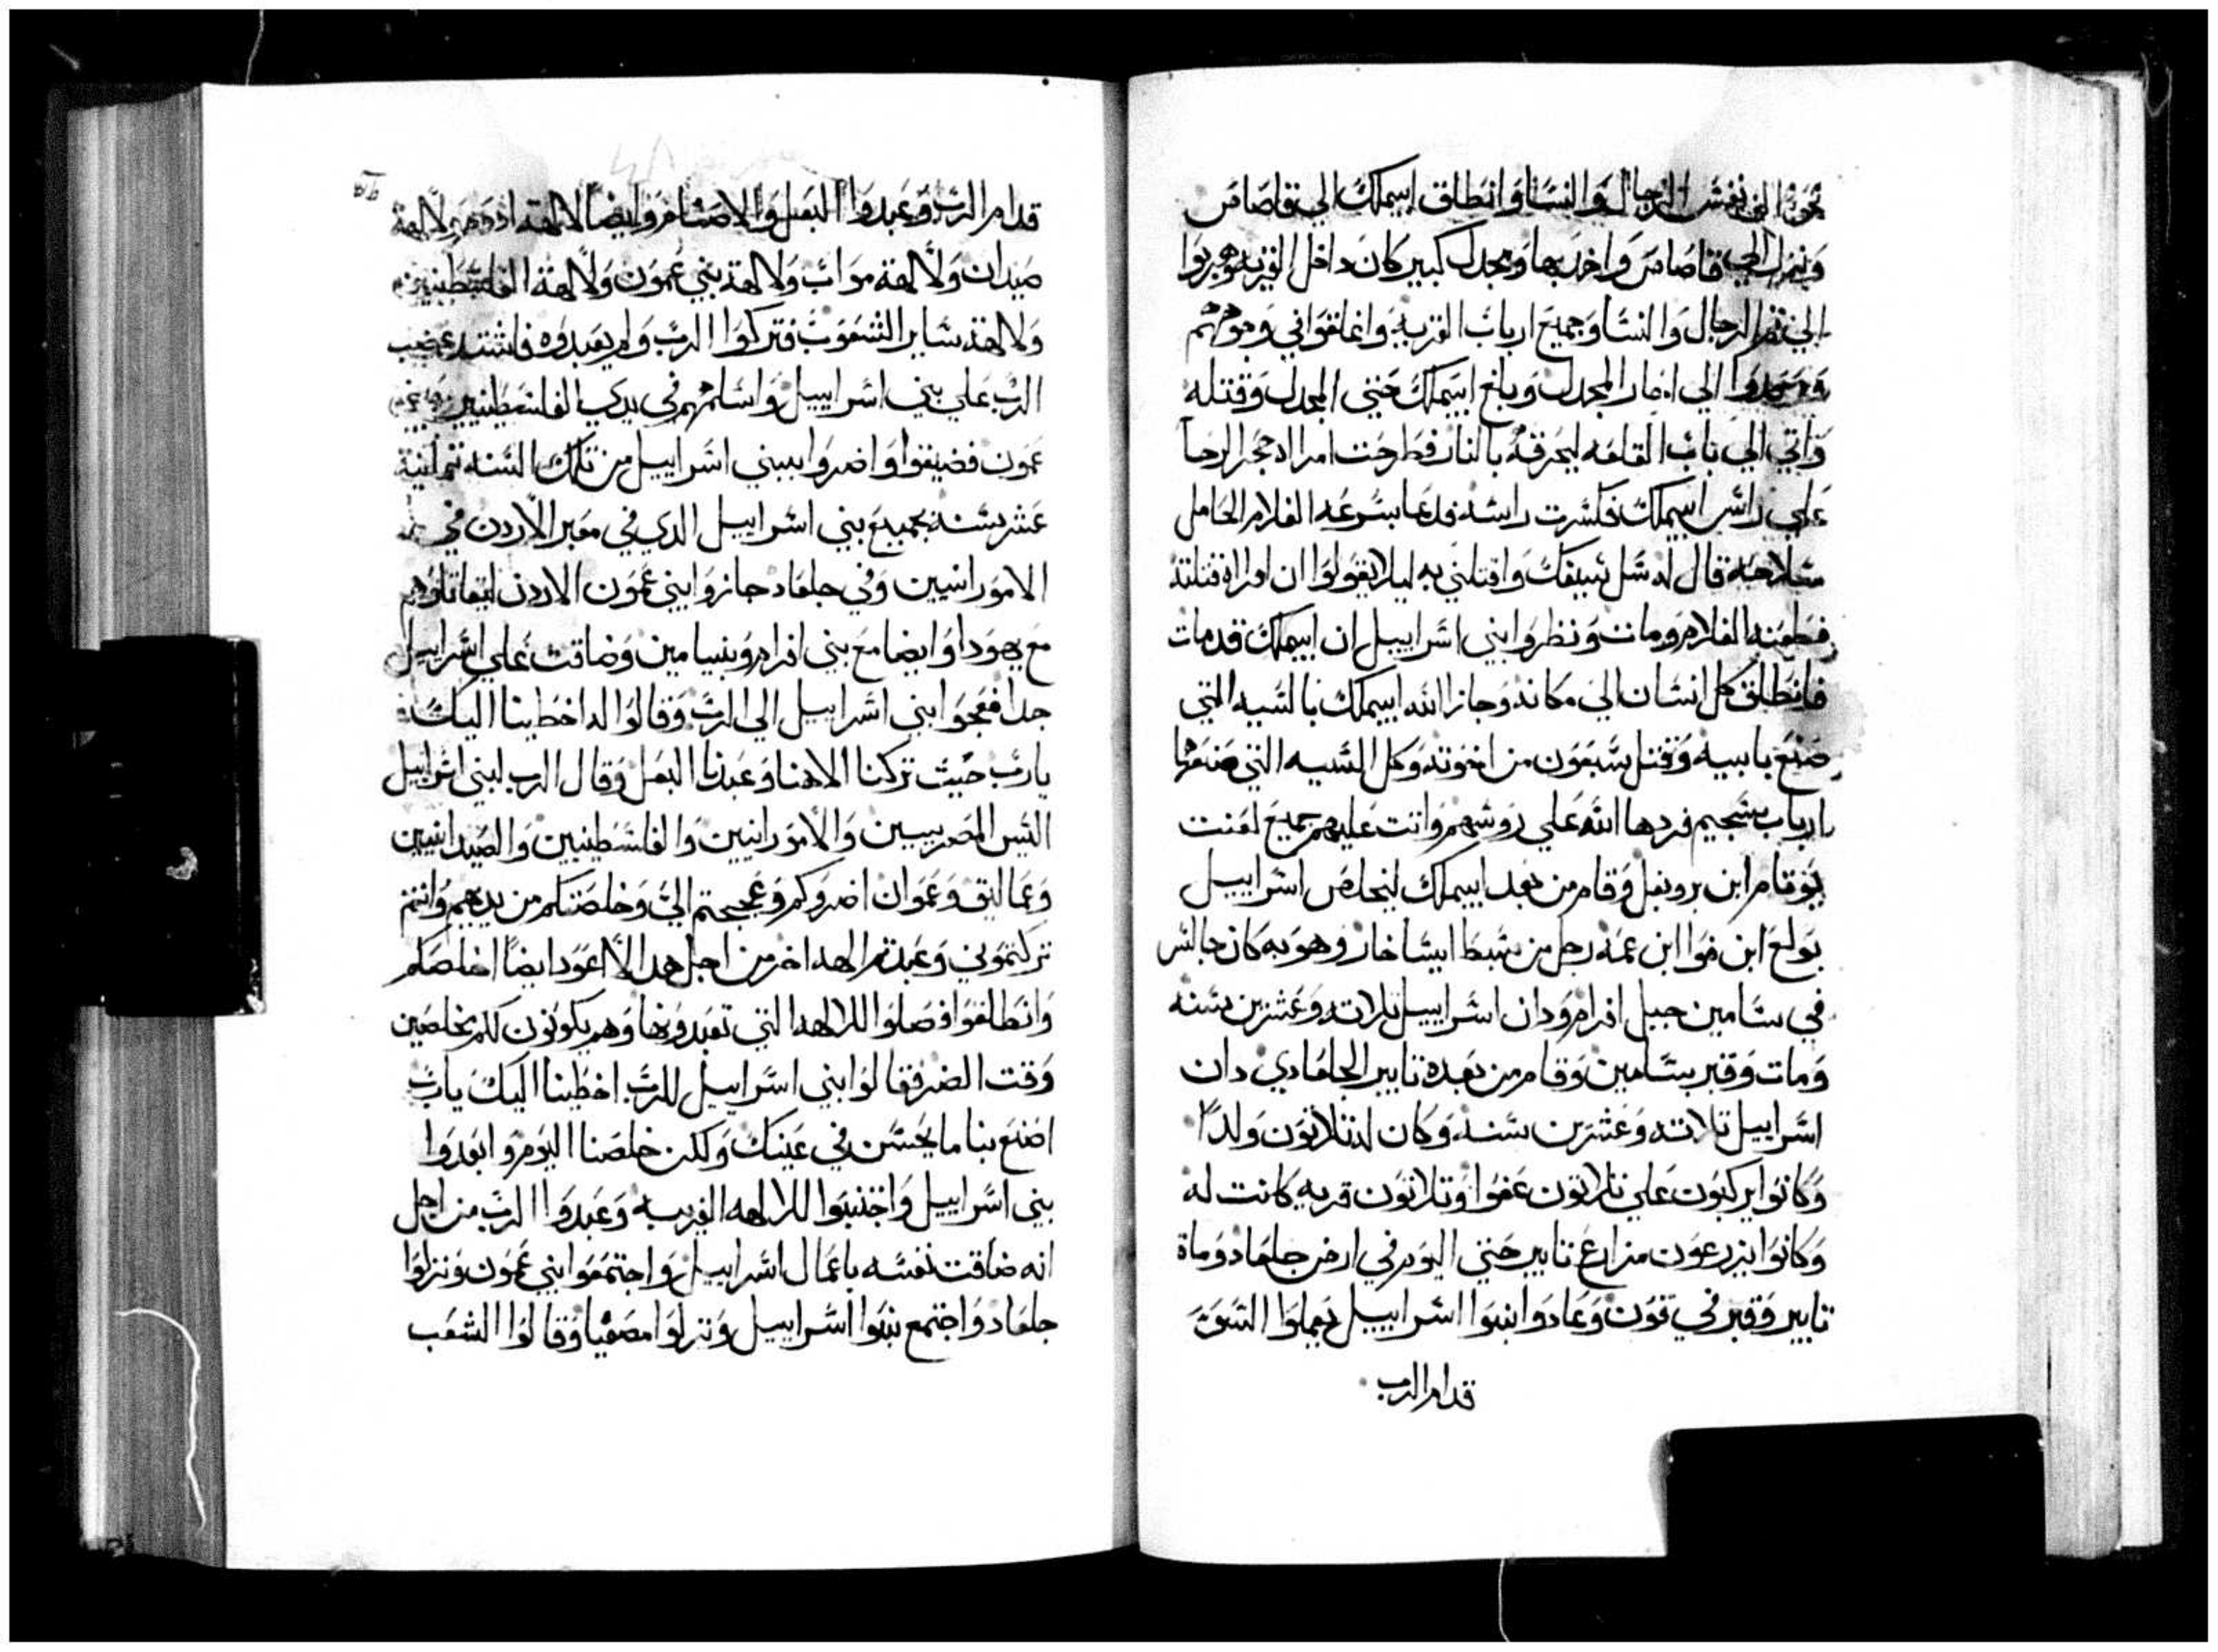 نحو الف نفس الرجال والنسا وانطلق ابيملك الي تقاصاص
ونزل الي تقاصاص واخدها ومجدل كبير كان داخل القريه وهربوا
الي تم الرجال والنسا وجميع ارباب القريه واغلقوا في وجوههم
وصعدوا الي اجار المجدل وبلغ ابيملك حتي المجدل وقتله
واتي الي باب القلعه ليحرقه بالنار فطرحت امراه حجر الرحا
علي راس ابيملك فكسرت راسه فدعا بسرعه الغلام الحامل
سلاحه قال له سل سيفك واقتلني به ليلا يقولوا ان امراه قتلته
فطعنه الغلام ومات ونظروا بني اسراييل ان ابيملك قد مات
فانطلق كل انسان الي مكانه وجاز الله ابيملك بالسيه التي
صنع بابيه وقتل سبعون من اخوته وكل السيه التي صنعوها
ارباب سجيم فردها الله علي روسهم واتت عليهم جميع لعنت
يوقام ابن يروبعل وقام من بعد ابيملك ليخلص اسراييل
تولع ابن فوا ابن عمه رجل من سبط ايساخار وهو به كان جالس
في سامين جبل افرام ودان اسراييل تلاته وعشرين سنه
ومات وقبر بسامين وقام من بعده تايير الجلعادي دان
اسراييل تلاته وعشرين سنه وكان له تلاتون ولدا
وكانوا يركبون علي تلاتون عفوا وتلاتون قريه كانت له
وكانوا يزرعون مزارع تايير حتي اليوم في ارض جلعاد ومات
تايير وقبر في قون وعادوا بنوا اسراييل يعملوا السو
قدام الرب
قدام الرب وعبدوا البعل والاصنام وايضا لالهة ادوم ولالهة
صيدان ولالهة مواب ولالهة بني عمون ولالهة الفلسطينيين
ولالهة ساير الشعوب فتركوا الرب ولم يعبدوه فاشتد غضب
الرب علي بني اسراييل واسلمهم في يدي الفلسطينيين وبني
عمون فضيقوا واضروا ببني اسراييل من تلك السنه تمانية
عشر سنه بجميع بني اسراييل الدي في معبر الاردن في
الامورانيين وفي جلعاد جازوا بني عمون الاردن ليقاتلوهم
مع يهودا وايضا مع بني افرام وبنيامين وضاقت علي اسراييل
جدا فعجوا بني اسراييل الي الرب وقالوا له اخطينا اليك
يارب حيث تركنا الاهنا وعبدنا البعل وقال الرب لبني اسراييل
اليس المصريين والامورانيين والفلسطينيين والصيدانيين
وعماليق وعموان اضروكم وعججتم الي وخلصتكم من يديهم وانتم
تركتموني وعبدتم الهه اخر من اجل هدا لا اعود ايضا اخلصكم
وانطلقوا فصلوا للالهه التي تعبدونها وهم يكونون لكم مخلصين
وقت الضر فقالوا بني اسراييل للرب اخطينا اليك يارب
اصنع بنا ما يحسن في عينك ولكن خلصنا اليوم وابعدوا
بني اسراييل واجتنبوا للالهه الغريبه وعبدوا الرب من اجل
انه ضاقت نفسه باعمال اسراييل واجتمعوا بني عمون ونزلوا
جلعاد واجتمع بنوا اسراييل ونزلوا مصفيا وقالوا الشعب